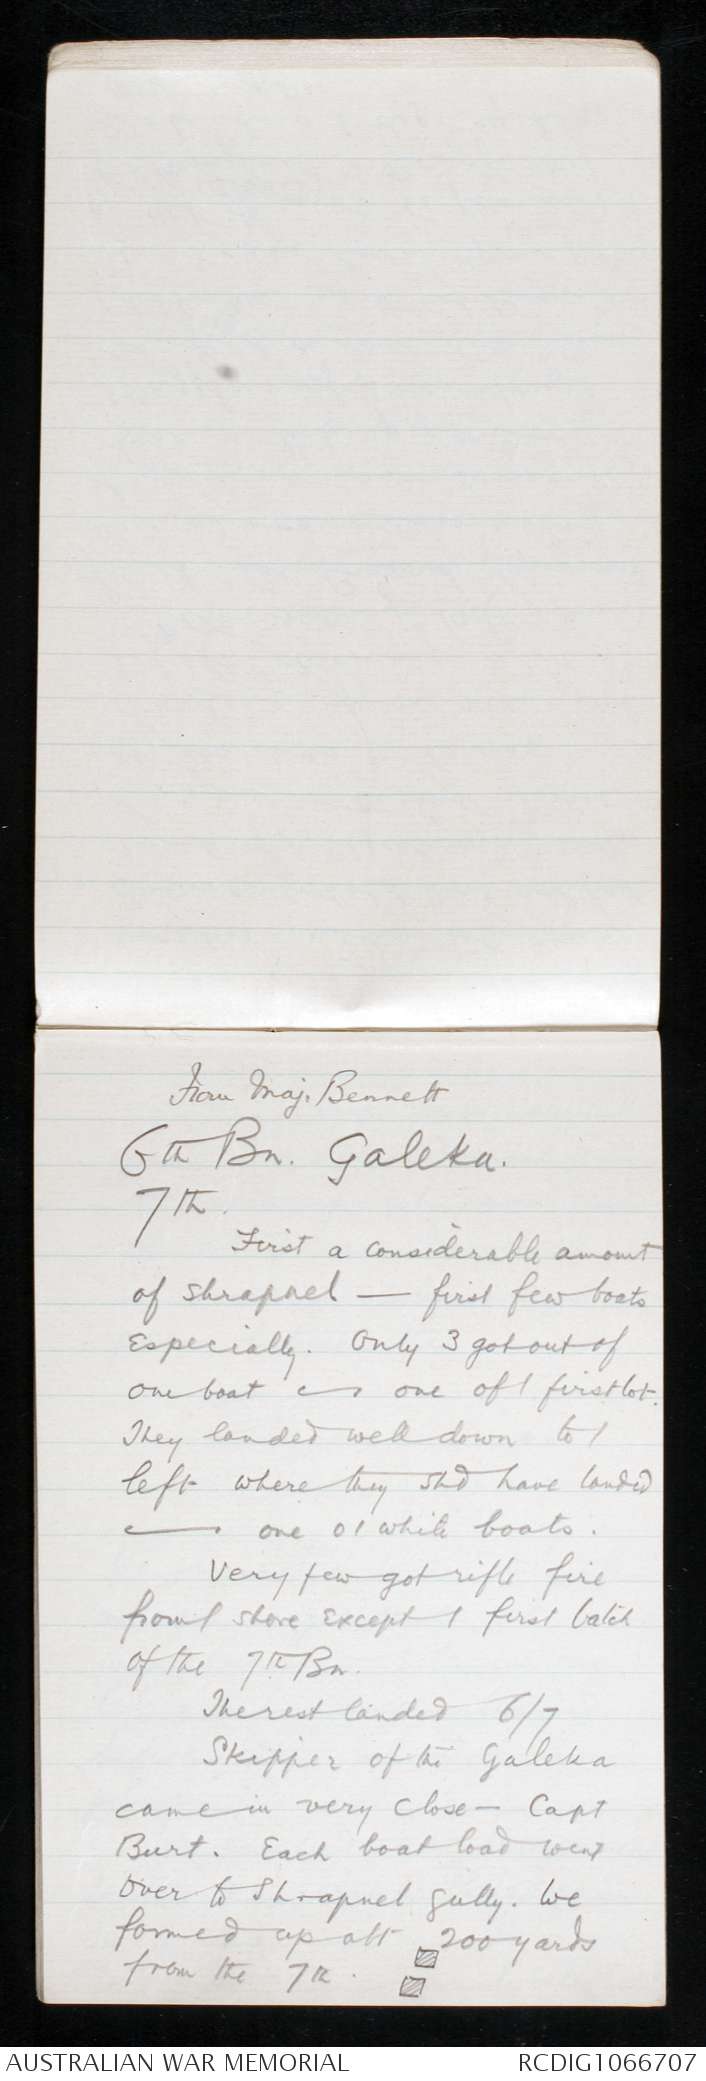 From Maj. Bennett
6th Bn. Galeka.
7th.
First a considerable amount
of shrapnel — first few boats
especially. Only 3 got out of
one boat — one of / first lot.
They landed well down to /
left where they shd have landed
— one o / white boats.
Very few got rifle fire
from / shore except / first batch
of the 7th Bn.
The rest landed 6/7
Skipper of the Galeka
came in very close — Capt
Burt. Each boat load went
over to Shrapnel gully. We
formed up abt 200 yards
from the 7th.
AUSTRALIAN WAR MEMORIAL
RCDIG1066707